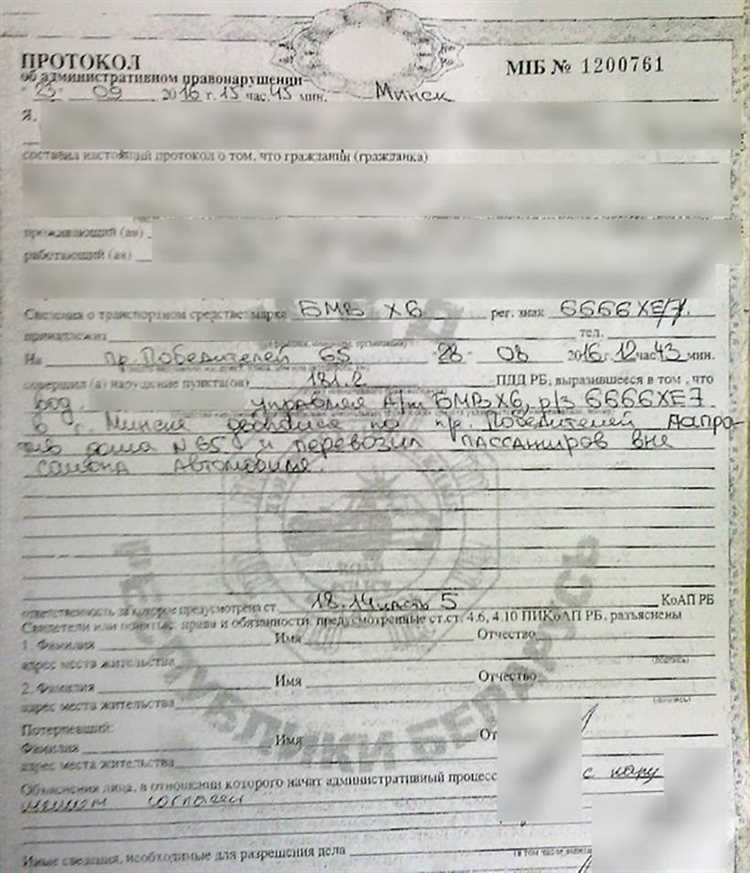 ПРОТОКОЛ МІБ № 1200761
об административном правонарушении
" 23 " 09 2016 г. 15 час. 45 мин. Минск
Я,
составил настоящий протокол о том, что гражданин (гражданка)
проживающий (ая)
работающий (ая)
Сведения о транспортном средстве: марка БМВ Х6 рег. знак 6666ХЕ/7.
принадлежит тел.
На пр. Победителей 65 28 08 2016 г. 12 час 43 мин.
совершил (а) нарушение пункта(ов) 181.2 ПДД РБ, выразившееся в том, что
вод. управляя А/м БМВ Х6, р/з 6666ХЕ7
в г. Минске двигался по пр. Победителей напро-
тив дома N65 и перевозил пассажиров вне
салона автомобиля.
ROAD
РЕСПУБЛИКИ БЕЛАРУСЬ
ответственность за которое предусмотрена ст. 18.14 часть 5 КоАП РБ
Свидетели или понятые: права и обязанности, предусмотренные ст.ст. 4.6, 4.10 ПИКоАП РБ, разъяснены
1. Фамилия Имя Отчество
адрес места жительства (подпись)
2. Фамилия Имя Отчество
адрес места жительства (подпись)
Потерпевший:
Фамилия Имя От
адрес места жительства
Объяснения лица, в отношении которого начат административный процесс с нару
шением согласен
Иные сведения, необходимые для разрешения дела